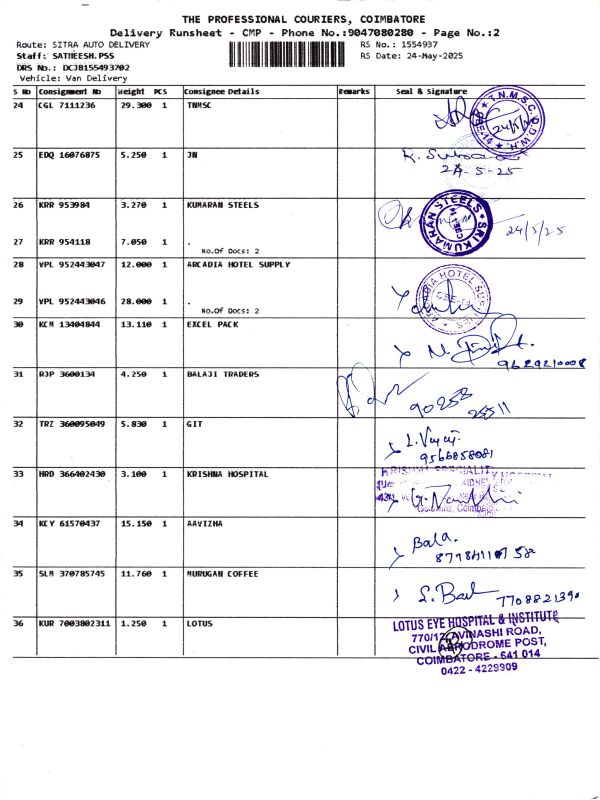 THE PROFESSIONAL COURIERS, COIMBATORE
Delivery Runsheet - CMP - Phone No.:9047080280 - Page No.:2
Route: SITRA AUTO DELIVERY
RS No.: 1554937
Staff: SATHEESH.PSS
RS Date: 24-May-2025
DRS No.: DCJB155493702
Vehicle: Van Delivery
S No Consignment No Weight PCS Consignee Details Remarks Seal & Signature
24 CGL 7111236 29.300 1 TNMSC
24/5/25
25 EDQ 16076875 5.250 1 JN
24-5-25
26 KRR 953984 3.270 1 KUMARAN STEELS
SRI KUMARAN STEELS
24/5/25
27 KRR 954118 7.050 1 .
No.Of Docs: 2
28 VPL 952443047 12.000 1 ARCADIA HOTEL SUPPLY
29 VPL 952443046 28.000 1 .
No.Of Docs: 2
30 KCM 13404844 13.110 1 EXCEL PACK
9629210008
31 RJP 3600134 4.250 1 BALAJI TRADERS
90253
25511
32 TRZ 360095049 5.830 1 GIT
9566858081
33 HRD 366402430 3.100 1 KRISHNA HOSPITAL
34 KCY 61570437 15.150 1 AAVIZHA
Bala.
35 SLM 370785745 11.760 1 MURUGAN COFFEE
7708821390
36 KUR 7003802311 1.250 1 LOTUS
LOTUS EYE HOSPITAL & INSTITUTE
770/12, AVINASHI ROAD,
CIVIL AERODROME POST,
COIMBATORE - 641 014
0422 - 4229909